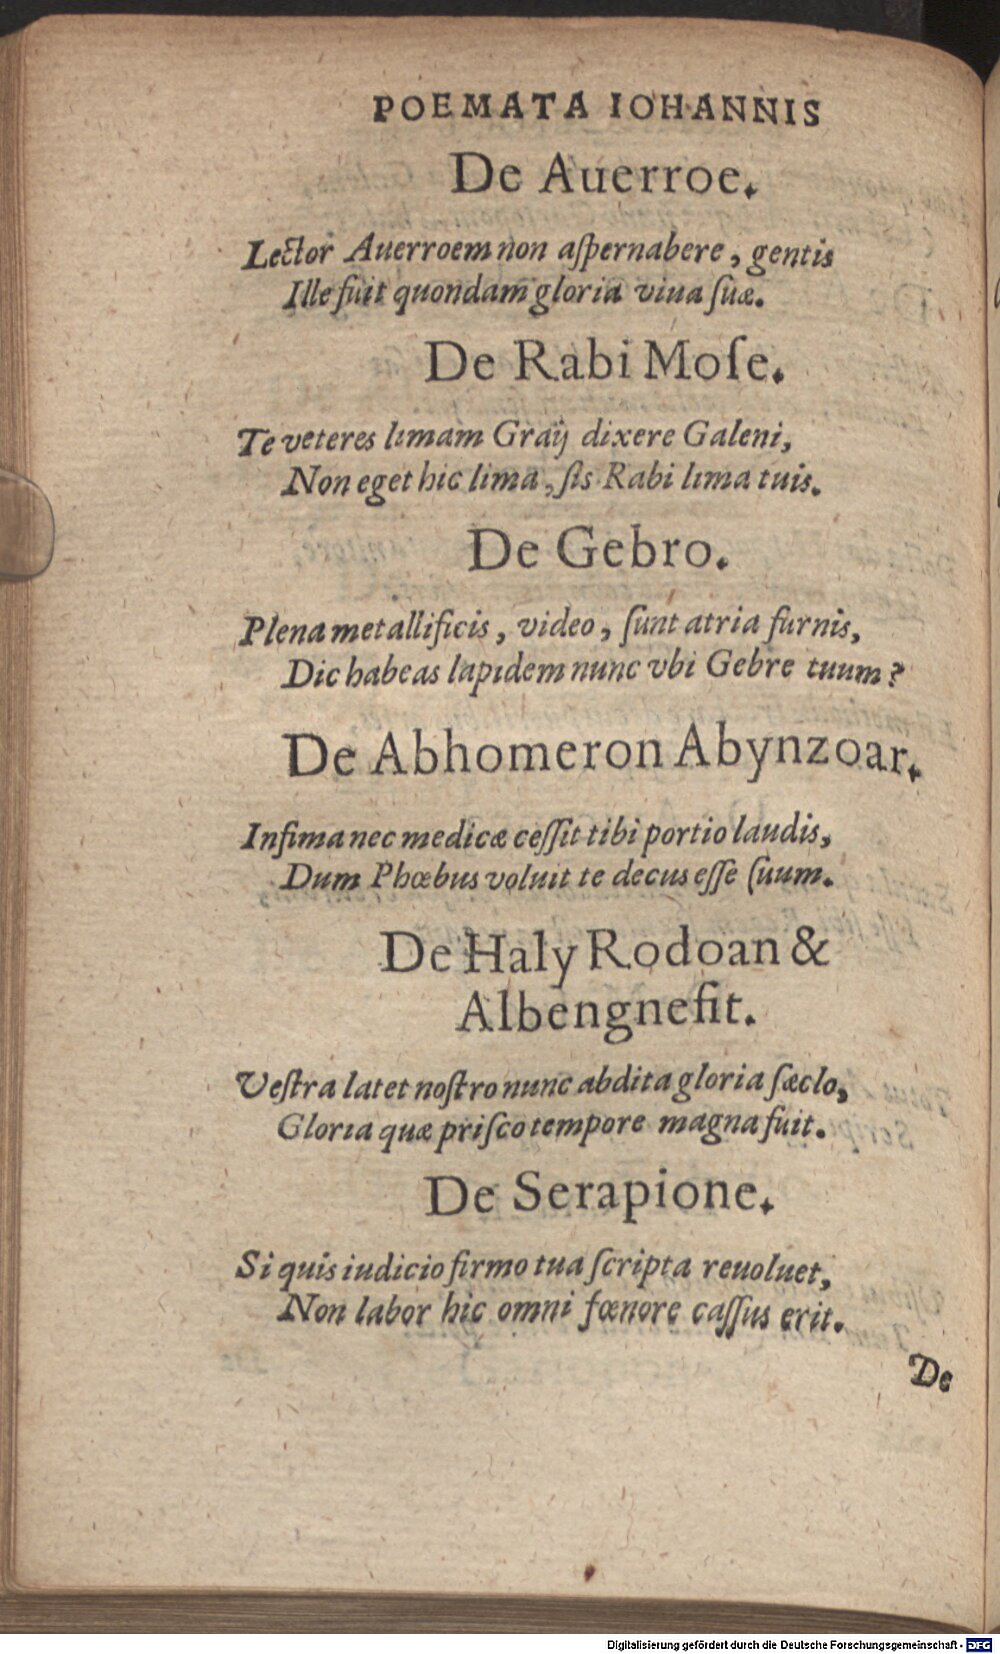 POEMATA IOHANNIS
De Auerroe.
Lector Auerroem non aſpernabere, gentis
Ille fuit quondam gloria viua ſuæ.
De Rabi Moſe.
Te veteres limam Graij dixere Galeni,
Non eget hic lima, ſis Rabi lima tuis.
De Gebro.
Plena metallificis, video, ſunt atria furnis,
Dic habeas lapidem nunc vbi Gebre tuum?
De Abhomeron Abynzoar.
Infima nec medicæ ceſſit tibi portio laudis,
Dum Phœbus voluit te decus eſſe ſuum.
De Haly Rodoan &
Albengnefit.
Veſtra latet noſtro nunc abdita gloria ſæclo,
Gloria quæ priſco tempore magna fuit.
De Serapione.
Si quis iudicio firmo tua ſcripta reuoluet,
Non labor hic omni fœnore caſſus erit.
De
Digitalisierung gefördert durch die Deutsche Forschungsgemeinschaft - DFG